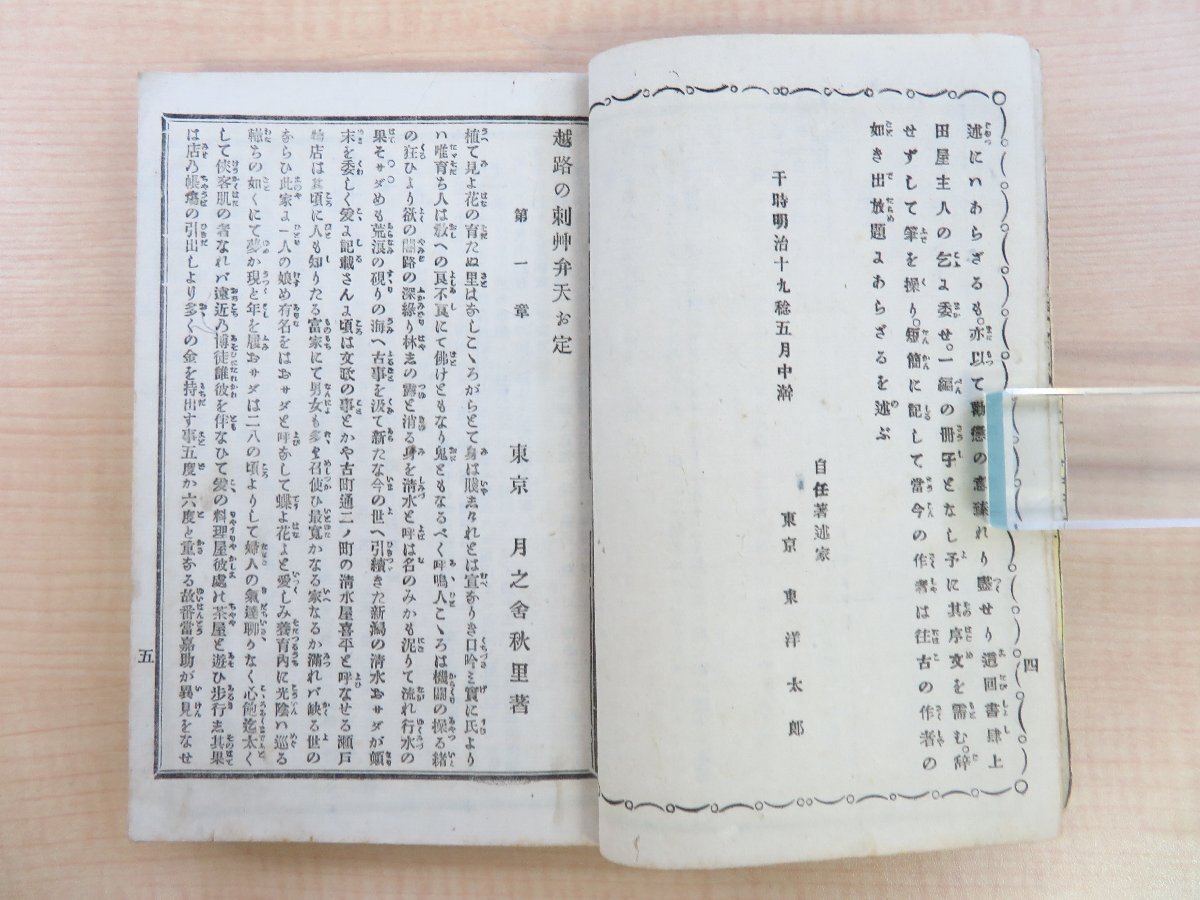 述にハあらざるも。亦以て勸懲の意臻れり盡せり這回書肆上
田屋主人の乞ょ委せ。一編の冊子となし予に其序文を需む。辞
せずして筆を操り。短簡に記して當今の作者は往古の作者の
如き出放題ょあらざるを述ぶ
干時明治十九稔五月中澣
自任著述家
東京 東洋太郎
四
越路の刺艸弁天お定
第一章
東京 月之舍秋里著
植て見よ花の育たぬ里はなしこゝろがらとて身は賤しけれとは宣なりき口吟ミ實に氏より
ハ唯育ち人は敎への良不良にて佛けともなり鬼ともなるべく呼嗚人こゝろは機關の操る緒
の狂ひより欲の闇路の深綠り林しの露と消る身を清水と呼は名のみかも泥りて流れ行水の
果そサダめも荒浪の硯りの海へ古事を汲て新たな今の世へ引續きた新潟の清水おサダが顚
末を委しく爰ょ記載さんょ頃は文政の事とかや古町通二ノ町の清水屋喜平と呼なせる瀬戸
物店は其頃に人も知りたる富家にて男女も多く召使ひ最寬かなる家なるか滿れバ缺る世の
ならひ此家ょ一人の娘め有名をはおサダと呼なして蝶よ花ょと愛しみ養育內に光陰ハ巡る
轆ちの如くにて夢か現と年を履おサダは二八の頃よりして婦人の氣達聊りなく心飽迄太く
して俠客肌の者なれバ遠近乃博徒誰彼を伴なひて爰の料理屋彼處の茶屋と遊ひ步行し其果
は店乃帳塲の引出しより多くの金を持出す事五度か六度と重なる故番當嘉助が異見をなせ
五